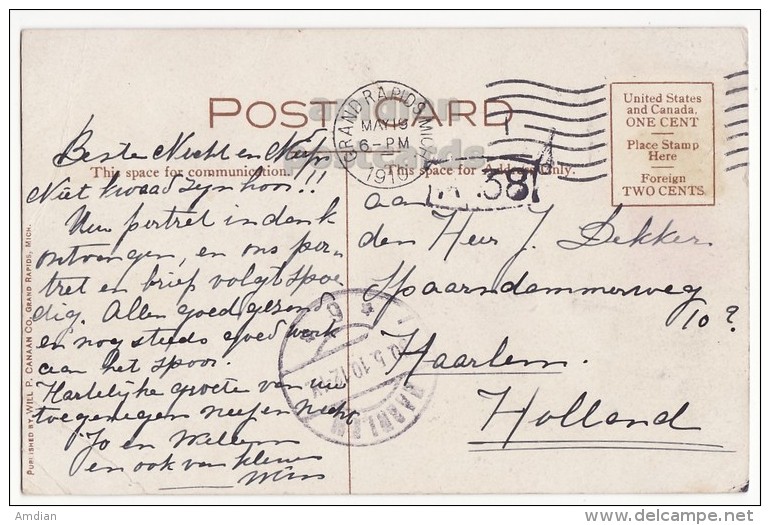 POST CARD
amdian
postcards
GRAND RAPIDS, MICH.
MAY 19
6-PM
1910
United States
and Canada,
ONE CENT
Place Stamp
Here
Foreign
TWO CENTS
This space for communication.
This space for Address Only.
38
Beste Nicht en Neef
Niet kwaad zijn hoor!!!
Uw portret in dank
ontvangen, en ons por-
tret en brief volgt spoe
dig. Allen goed gezond
en nog steeds goed werk
aan het spoor.
Hartelijke groete van uw
toegenegen neef en nicht
Jo en Willem
en ook van kleine
Wim
aan
den Heer J. Dekker
Spaarndammerweg
10?
Haarlem.
Holland
HAARLEM
PUBLISHED BY WILL P. CANAAN CO., GRAND RAPIDS, MICH.
© Amdian
www.delcampe.net